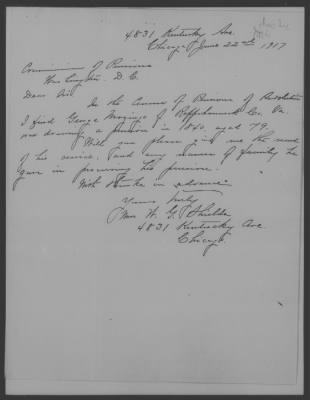 4831 Kentucky Ave.
Chicago June 22nd 1917
Commissioner of Pensions
Washington, D.C.
Dear Sir
In the Census of Pensioners of Revolution
I find George of Rappahannock Co. Va.
was drawing a pension in 1840, aged 79.
Will you please give me the record
of his service, and any names of family he
gave in procuring his pension.
With thanks in advance
Yours truly
Mrs W. G. Shields
4831 Kentucky Ave
Chicago.